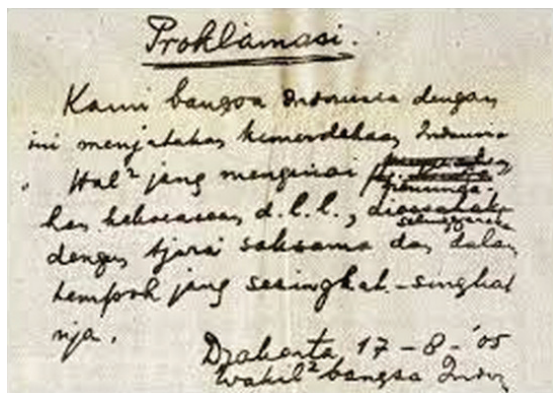 Proklamasi.
Kami bangsa Indonesia dengan
ini menjatakan kemerdekaan Indonesia
Hal² jang mengenai
han kekoeasaan d.l.l.,
dengan tjara saksama dan dalam
tempoh jang sesingkat-singkat
nja.
Djakarta 17 - 8 - '05
Wakil² bangsa